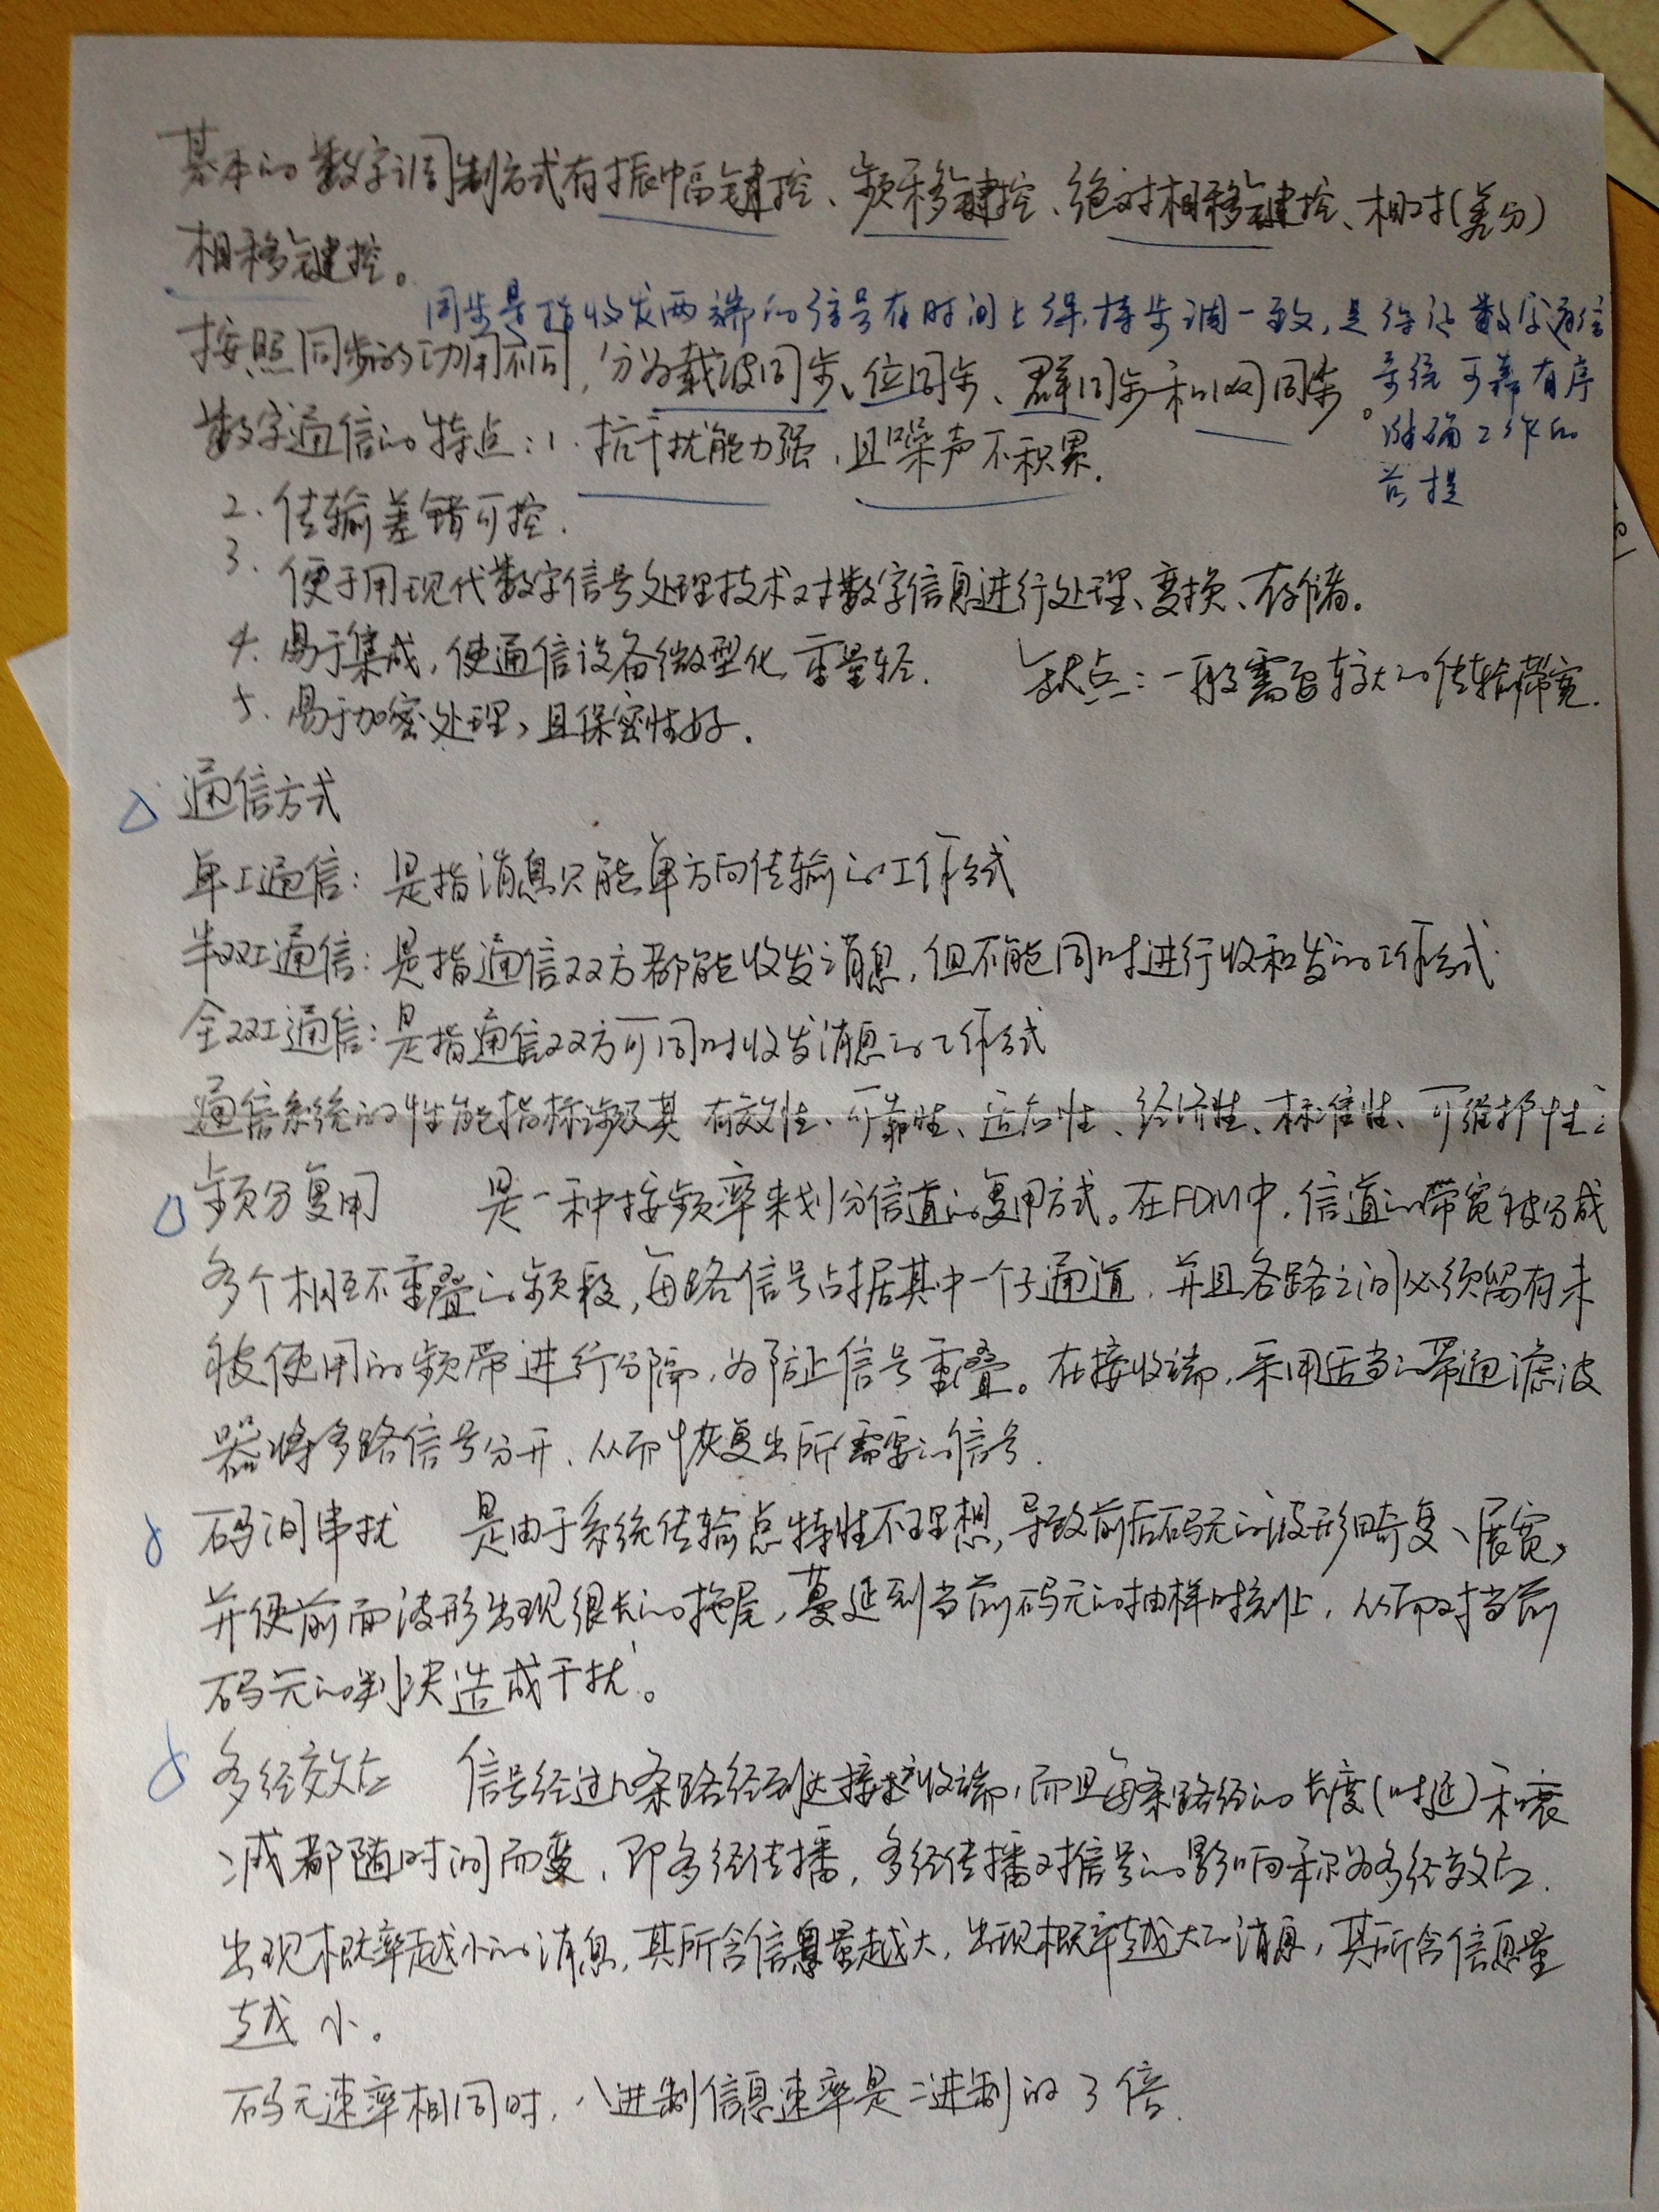 基本的数字调制方式有振幅键控、频移键控、绝对相移键控、相对(差分)
相移键控。
同步是指收发两端的信号在时间上保持步调一致,是保证数字通信
系统可靠有序
准确工作的
前提
按照同步的功用不同,分为载波同步、位同步、群同步和网同步。
数字通信的特点:1.抗干扰能力强,且噪声不积累.
2.传输差错可控.
3.便于用现代数字信号处理技术对数字信息进行处理、变换、存储。
4.易于集成,使通信设备微型化,重量轻.
缺点:一般需要较大的传输带宽.
5.易于加密处理,且保密性好.
通信方式
单工通信:是指消息只能单方向传输的工作方式
半双工通信:是指通信双方都能收发消息,但不能同时进行收和发的工作方式
全双工通信:是指通信双方可同时收发消息的工作方式
通信系统的性能指标涉及其有效性、可靠性、适应性、经济性、标准性、可维护性
频分复用 是一种按频率来划分信道的复用方式。在FDM中,信道的带宽被分成
多个相互不重叠的频段,每路信号占据其中一个子通道,并且各路之间必须留有未
被使用的频带进行分隔,为防止信号重叠。在接收端,采用适当的带通滤波
器将多路信号分开,从而恢复出所需要的信号.
码间串扰 是由于系统传输总特性不理想,导致前后码元的波形畸变、展宽,
并使前面波形出现很长的拖尾,蔓延到当前码元的抽样时刻上,从而对当前
码元的判决造成干扰。
多径效应 信号经过几条路径到达接收端,而且每条路径的长度(时延)和衰
减都随时间而变,即多径传播,多径传播对信号的影响称为多径效应.
出现概率越小的消息,其所含信息量越大,出现概率越大的消息,其所含信息量
越小。
码元速率相同时,八进制信息速率是二进制的3倍.